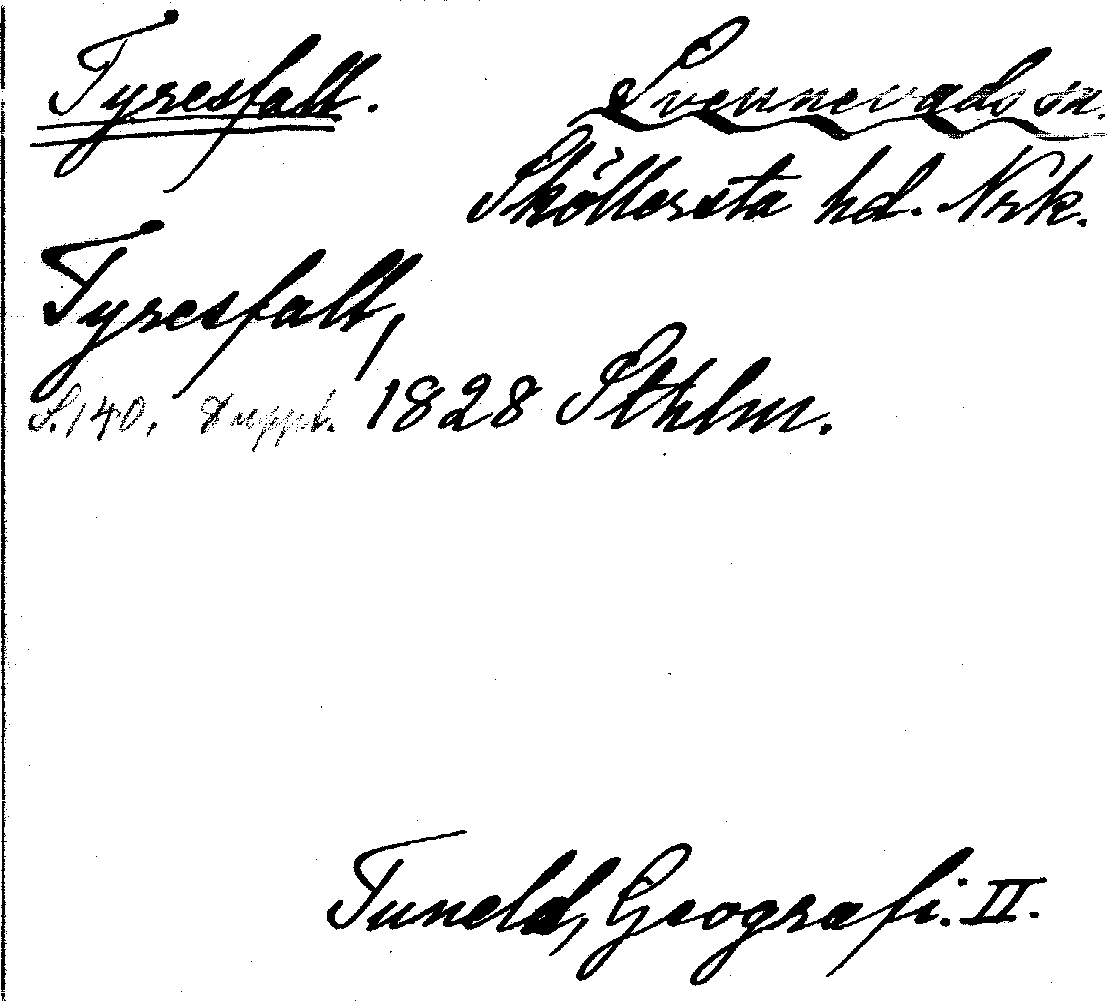 Tyresfall. Svennevads sn.
Sköllersta hd. Nrk.
Tyresfall,
S.140, uppl. 1828 Sthlm.
Tuneld, Geografi. II.